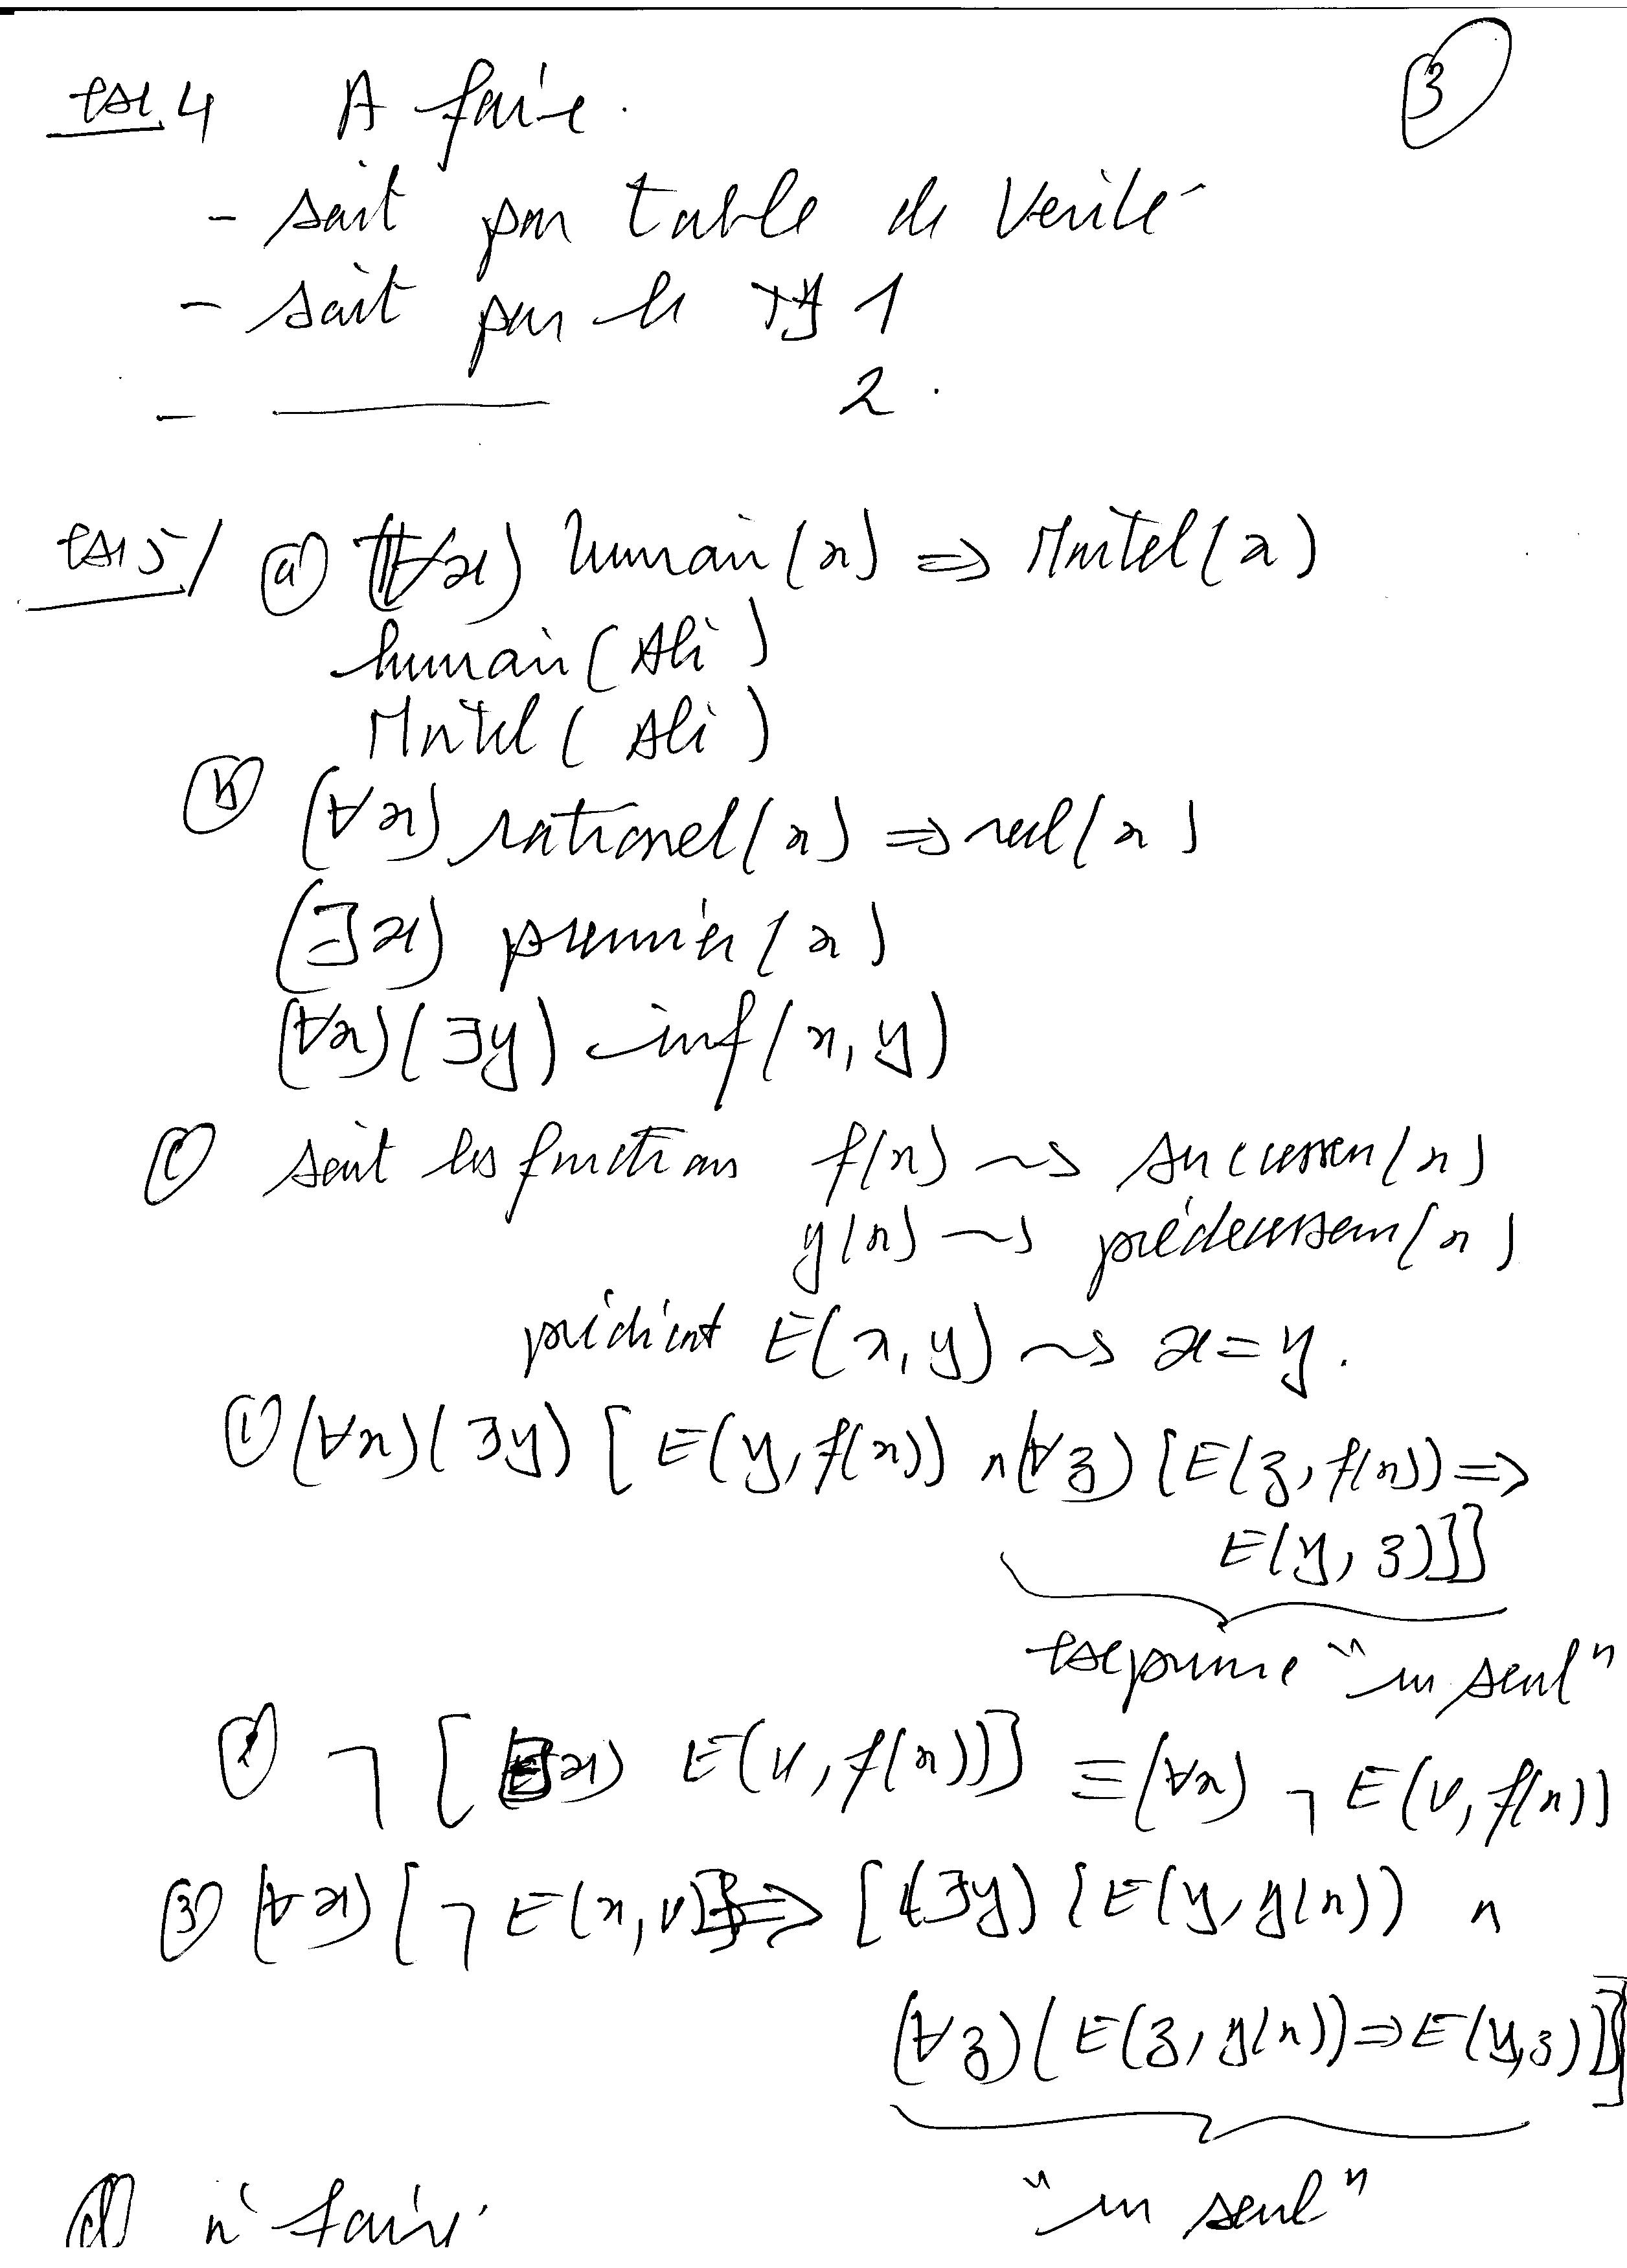 ③
exe 4 A faire.
- soit par table de verité
- soit par le th 1
- ——— 2.
exe 5/ ⓐ (∀x) humain(x) ⇒ Mortel(x)
humain(Ali)
Mortel(Ali)
ⓑ (∀x) rationel(x) ⇒ reel(x)
(∃x) premier(x)
(∀x)(∃y) inf(x,y)
ⓒ soit les fonctions f(x) ⇝ successeur(x)
g(x) ⇝ prédecesseur(x)
prédicat E(x,y) ⇝ x=y.
① (∀x)(∃y) [E(y,f(x)) ∧ (∀z) [E(z,f(x)) ⇒
E(y,z)]]
exprime "un seul"
② ¬ [(∃x) E(0,f(x))] ≡ (∀x) ¬ E(0,f(x))
③ (∀x) [¬ E(x,0)] ⇒ [(∃y) (E(y,g(x)) ∧
(∀z)(E(z,g(x)) ⇒ E(y,z)]]
"un seul"
ⓓ à faire.